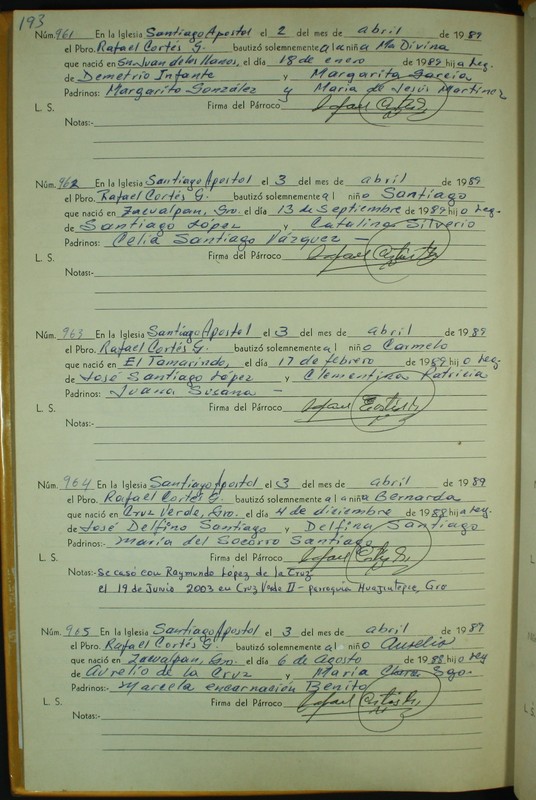 193
Núm. 961 En la Iglesia Santiago Apostol el 2 del mes de abril de 1989
el Pbro. Rafael Cortés G. bautizó solemnemente a la niña Ma Divina
que nació en Sn Juan de los Llanos, el día 18 de enero de 1989 hij a Leg.
de Demetrio Infante y Margarita García
Padrinos: Margarita González y Maria de Jesús Martinez
L. S. Firma del Párroco Rafael Cortés
Notas:-
Núm. 962 En la Iglesia Santiago Apostol el 3 del mes de abril de 1989
el Pbro. Rafael Cortés G. bautizó solemnemente al niño Santiago
que nació en Zacualpan, Gro. el día 13 de Septiembre de 1989 hij o Leg.
de Santiago López y Catalina Silverio
Padrinos: Celia Santiago Vázquez —
L. S. Firma del Párroco Rafael Cortés
Notas:-
Núm. 963 En la Iglesia Santiago Apostol el 3 del mes de abril de 1989
el Pbro. Rafael Cortés G. bautizó solemnemente al niño Carmelo
que nació en El Tamarindo, el día 17 de febrero de 1989 hij o Leg.
de José Santiago López y Clementina Patricia
Padrinos: Juana Susana —
L. S. Firma del Párroco Rafael Cortés
Notas:-
Núm. 964 En la Iglesia Santiago Apostol el 3 del mes de abril de 1989
el Pbro. Rafael Cortés G. bautizó solemnemente a la niña Bernarda
que nació en Cruz Verde, Gro. el día 4 de diciembre de 1988 hij a Leg.
de José Delfino Santiago y Delfina Santiago
Padrinos:- Maria del Socorro Santiago
L. S. Firma del Párroco Rafael Cortés
Notas:- Se casó con Raymundo López de la Cruz
el 19 de Junio 2003 en Cruz Verde II - parroquia Huajintepec, Gro
Núm. 965 En la Iglesia Santiago Apostol el 3 del mes de abril de 1989
el Pbro. Rafael Cortés G. bautizó solemnemente al niño Aurelio
que nació en Zacualpan, Gro. el día 6 de Agosto de 1988 hij o Leg
de Aurelio de la Cruz y Maria Sgo.
Padrinos:- Marcela encarnación Benito
L. S. Firma del Párroco Rafael Cortés
Notas:-